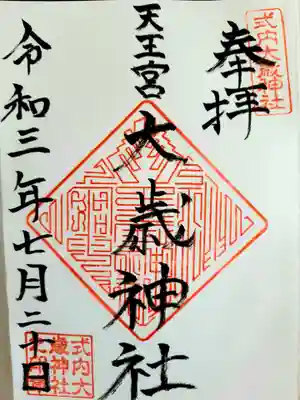 奉拝
式内大歳神社
天王宮
大歳神社
令和三年七月二十日
式内大歳神社